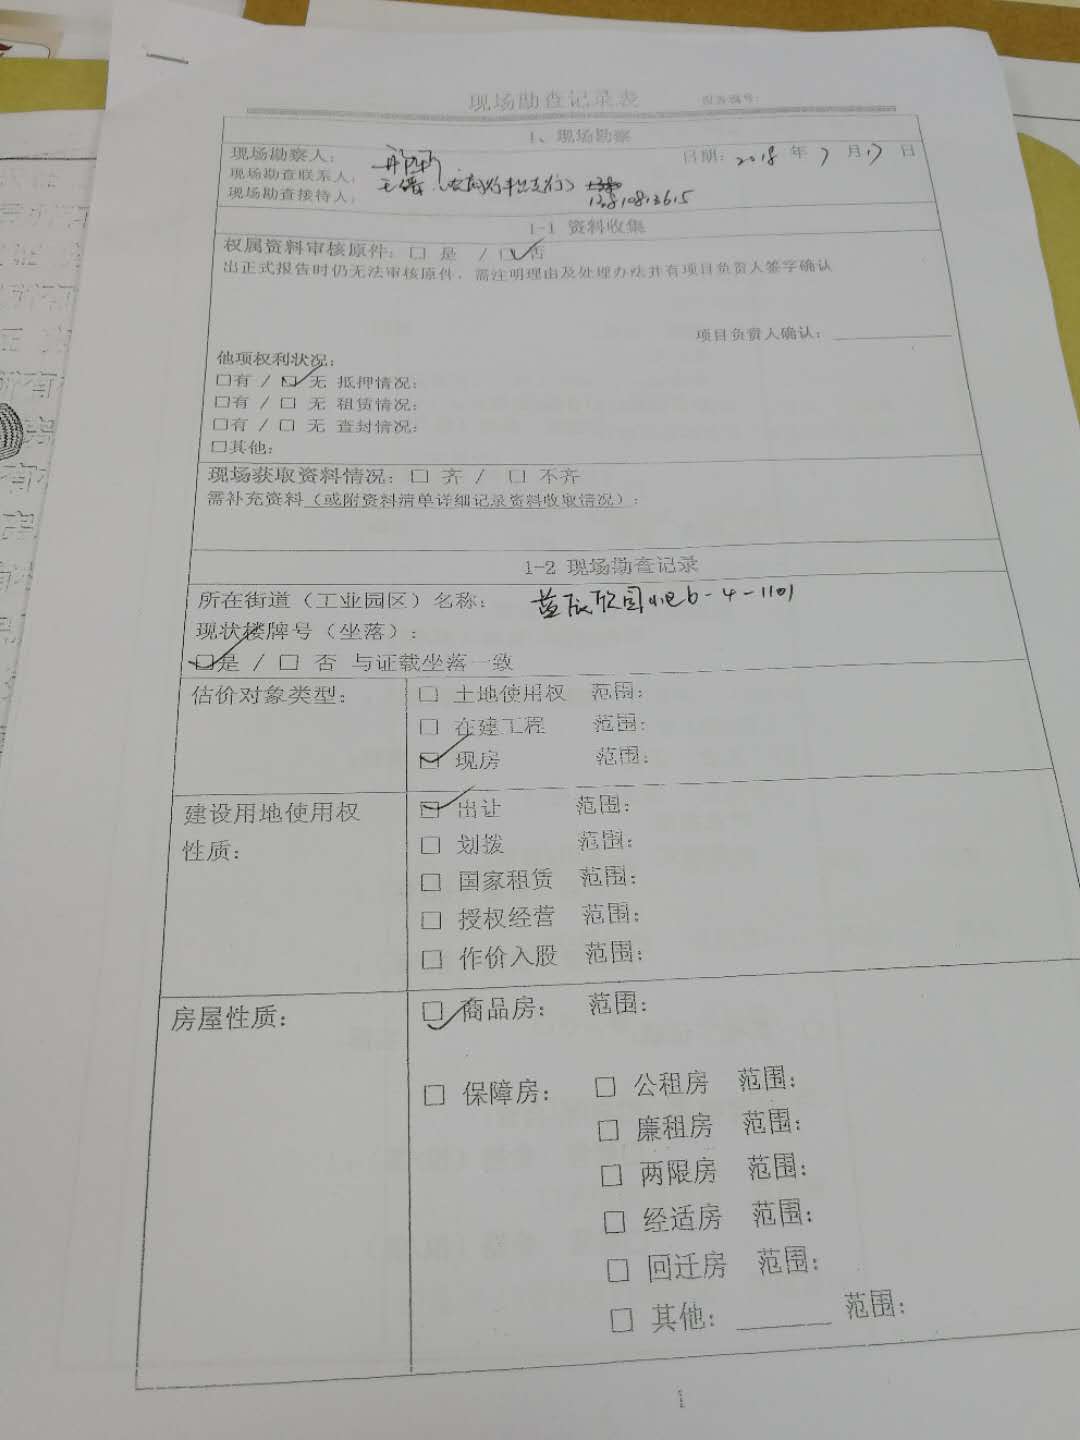 现场勘查记录表 报告编号:
1、现场勘察
现场勘察人: 日期: 2018 年 7 月 17 日
现场勘查联系人:
现场勘查接待人: 13810813615
1-1 资料收集
权属资料审核原件: □ 是 / ☑ 否
出正式报告时仍无法审核原件,需注明理由及处理办法并有项目负责人签字确认
项目负责人确认:
他项权利状况:
□有 / ☑ 无 抵押情况:
□有 / □ 无 租赁情况:
□有 / □ 无 查封情况:
□其他:
现场获取资料情况: □ 齐 / □ 不齐
需补充资料(或附资料清单详细记录资料收取情况):
1-2 现场勘查记录
所在街道(工业园区)名称: 6-4-1101
现状楼牌号(坐落):
☑是 / □ 否 与证载坐落一致
估价对象类型: □ 土地使用权 范围:
□ 在建工程 范围:
☑ 现房 范围:
建设用地使用权性质: ☑ 出让 范围:
□ 划拨 范围:
□ 国家租赁 范围:
□ 授权经营 范围:
□ 作价入股 范围:
房屋性质: ☑ 商品房: 范围:
□ 保障房: □ 公租房 范围:
□ 廉租房 范围:
□ 两限房 范围:
□ 经适房 范围:
□ 回迁房 范围:
□ 其他: 范围:
1